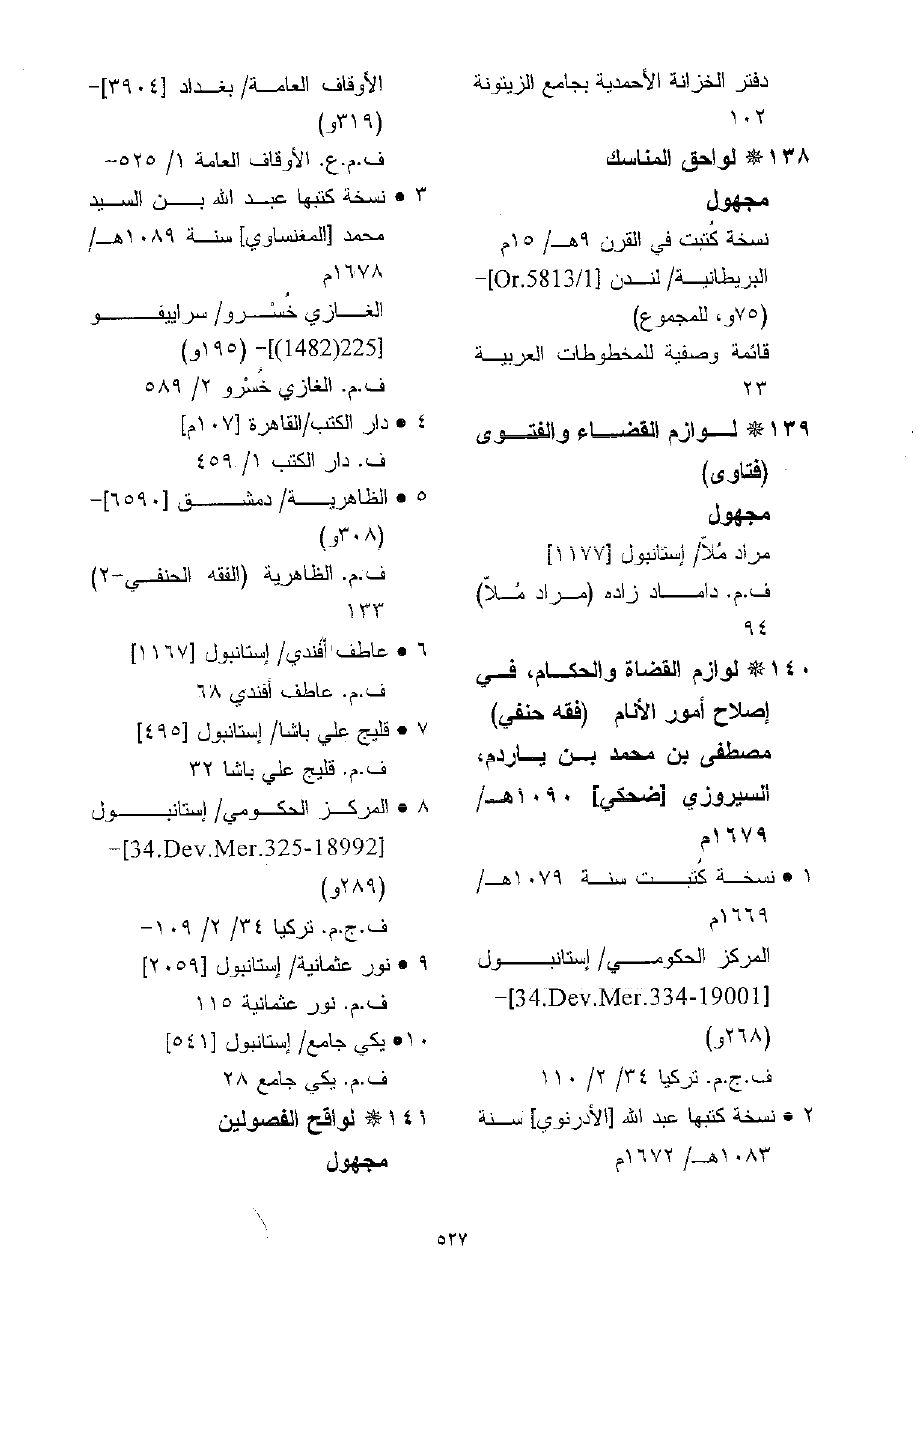 دفتر الخزانة الأحمدية بجامع الزيتونة
١٠٢
١٣٨ ❊ لواحق المناسك
مجهول
نسخة كُتبت في القرن ٩هـ/ ١٥م
البريطانية/ لندن [Or.5813/1]–
(٧٥و، للمجموع)
قائمة وصفية للمخطوطات العربية
٢٣
١٣٩ ❊ لوازم القضاء والفتوى
(فتاوى)
مجهول
مراد مُلاّ/ إستانبول [١١٧٧]
ف.م. داماد زاده (مراد مُلاّ)
٩٤
١٤٠ ❊ لوازم القضاة والحكام، في
إصلاح أمور الأنام (فقه حنفي)
مصطفى بن محمد بن ياردم،
السيروزي [ضحكي] ١٠٩٠هـ/
١٦٧٩م
١ • نسخة كُتبت سنة ١٠٧٩هـ/
١٦٦٩م
المركز الحكومي/ إستانبول
[34.Dev.Mer.334-19001]–
(٢٦٨و)
ف.ج.م. تركيا ٣٤/ ٢/ ١١٠
٢ • نسخة كتبها عبد الله [الأدرنوي] سنة
١٠٨٣هـ/ ١٦٧٢م
الأوقاف العامة/ بغداد [٣٩٠٤]–
(٣١٩و)
ف.م.ع. الأوقاف العامة ١/ ٥٢٥–
٣ • نسخة كتبها عبد الله بن السيد
محمد [المغنساوي] سنة ١٠٨٩هـ/
١٦٧٨م
الغازي خُسْرو/ سراييفو
[225(1482)]– (١٩٥و)
ف.م. الغازي خُسْرو ٢/ ٥٨٩
٤ • دار الكتب/القاهرة [١٠٧م]
ف. دار الكتب ١/ ٤٥٩
٥ • الظاهرية/ دمشق [٦٥٩٠]–
(٣٠٨و)
ف.م. الظاهرية (الفقه الحنفي-٢)
١٣٣
٦ • عاطف أفندي/ إستانبول [١١٦٧]
ف.م. عاطف أفندي ٦٨
٧ • قليج علي باشا/ إستانبول [٤٩٥]
ف.م. قليج علي باشا ٣٢
٨ • المركز الحكومي/ إستانبول
[34.Dev.Mer.325-18992]–
(٢٨٩و)
ف.ج.م. تركيا ٣٤/ ٢/ ١٠٩–
٩ • نور عثمانية/ إستانبول [٢٠٥٩]
ف.م. نور عثمانية ١١٥
١٠• يكي جامع/ إستانبول [٥٤١]
ف.م. يكي جامع ٢٨
١٤١ ❊ لواقح الفصولين
مجهول
٥٢٧